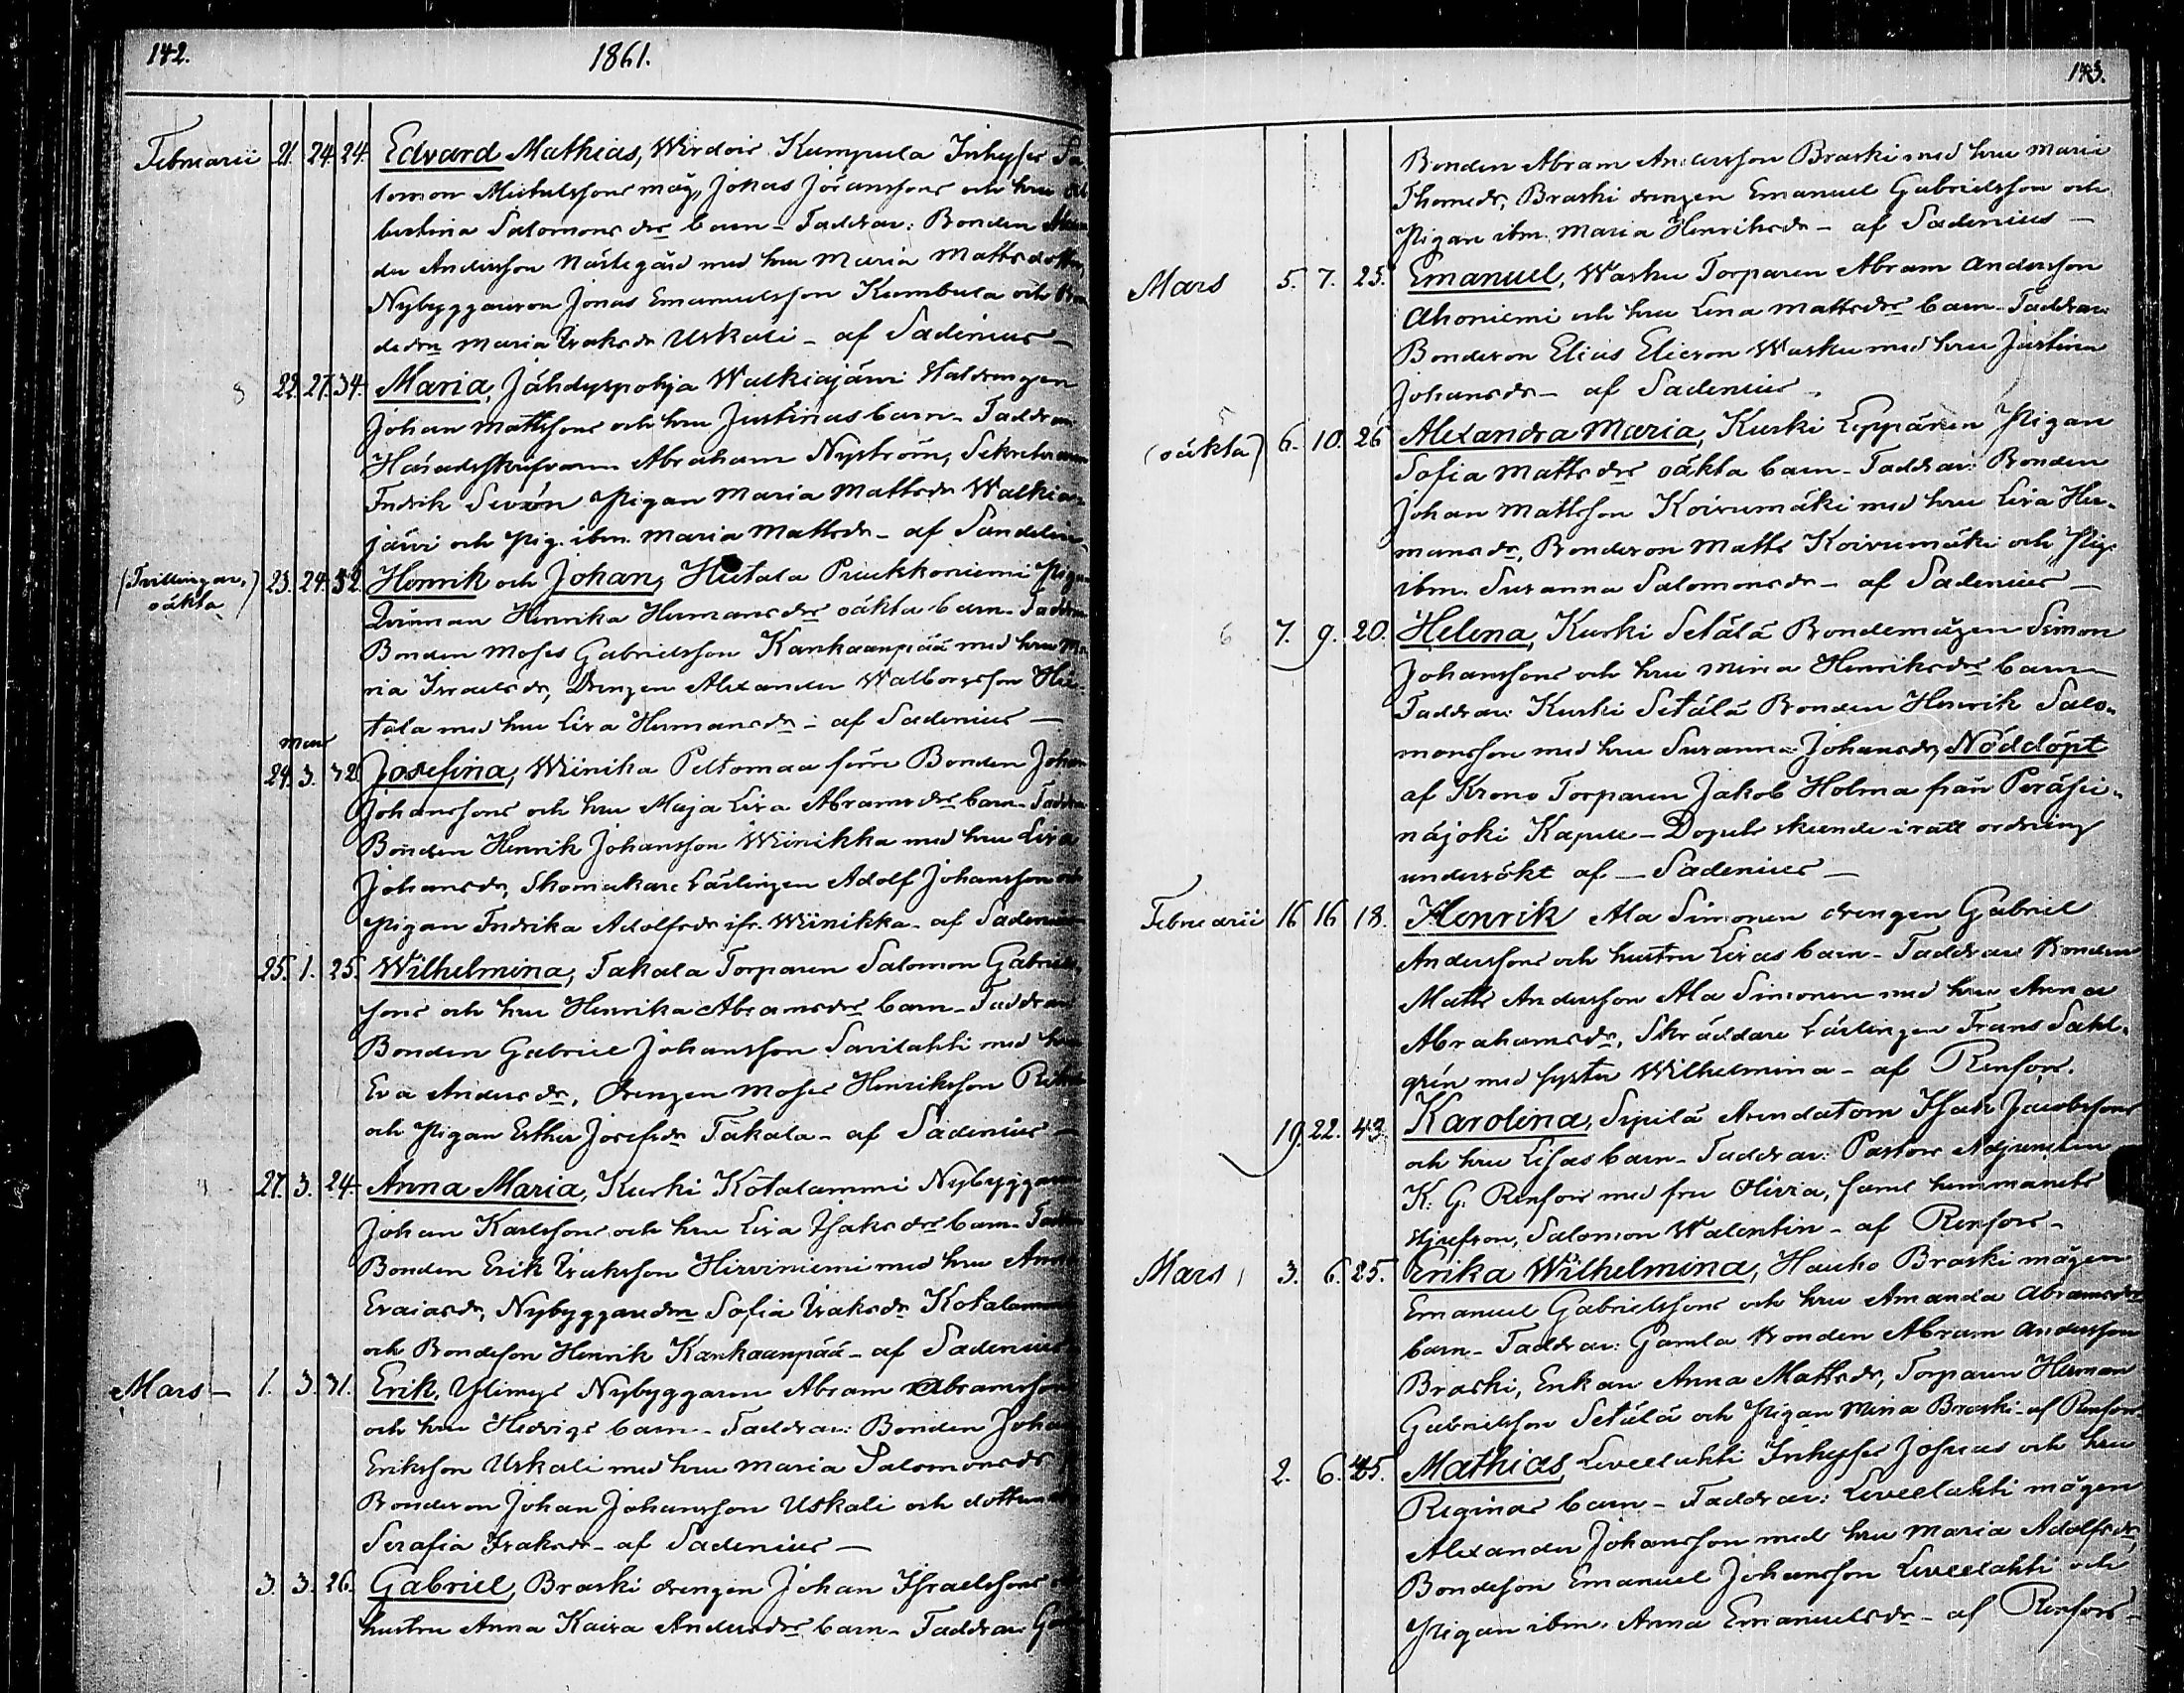 142.
1861.
Februarii 21. 24. 24. Edvard Mathias, Wirdois Kumpula Inhyses Sa
lomon Michelssons måg, Johas Jöranssons och hru
bertina Salomons drs barn - Faddrar: Bonden
der Andersson Nästegård med hru Maria Mattsdotter
Nybyggareson Jonas Emanuelsson Kumbula och Bon
dedrn Maria Isaksdr Uskali - af Sadenius -
22. 27. 34. Maria, Jähdyspohja Walkiajärvi Haldrengen
Johan Mattssons och hru Justinas barn - Faddrar
Häradsskrifvaren Abraham Nyström, Sekreteraren
Fredrik Sevón Pigan Maria Mattsdr Walkia
järvi och Pig. ibm. Maria Mattsdr - af Sandelin.
(Tvillingar, oäkta) 23. 24. 32. Henrik och Johan, Hietala Puukkoniemi Pigan
Qvinnan Henrika Hermans drs oäkta barn - Faddrar
Bonden Moses Gabrielsson Kankaanpää med hru Ma
ria Israelsdr, Drengen Alexander Walborgsson Hie
tala med hru Lisa Hermansdr - af Sadenius -
Mars
24. 3. 32. Josefina, Wiinika Peltomaa förre Bonden Johan
Johanssons och hru Maja Lisa Abrams drs barn - Faddrar
Bonden Henrik Johansson Wiinikka med hru Lisa
Johansdr, Skomakare Lärlingen Adolf Johansson och
Pigan Fredrika Adolfsdr ifr. Wiinikka - af Sadenius
25. 1. 25. Wilhelmina, Takala Torparen Salomon Gabriels
sons och hru Henrika Abramsdrs barn - Faddrar
Bonden Gabriel Johansson Savilahti med hru
Eva Andersdr, Drengen Moses Henriksson
och Pigan Esther Josefsdr Takala - af Sadenius -
27. 3. 24. Anna Maria, Kurki Kotalammi Nybyggaren
Johan Karlssons och hru Lisa Isaks drs barn - Faddrar
Bonden Erik Isaksson Hirviniemi med hru Anna
Esaiasdr, Nybyggaredrn Sofia Isaksdr Kotalammi
och Bondeson Henrik Kankaanpää - af Sadenius
Mars - 1. 3. 31. Erik, Ylimys Nybyggaren Abram Abramsson
och hru Hedvigs barn - Faddrar: Bonden Johan
Eriksson Uskali med hru Maria Salomonsdr
Bondeson Johan Johansson Uskali och dottren
Serafia Isaksdr - af Sadenius -
3. 3. 26. Gabriel, Braski drengen Johan Israelssons och
hustru Anna Kaisa Andersdrs barn - Faddrar: Ga
143.
Bonden Abram Andersson Braski med hru Maria
Thomedr, Braski drengen Emanuel Gabrielsson och
Pigan ibm. Maria Henriksdr - af Sadenius -
Mars 5. 7. 25. Emanuel, Wasku Torparen Abram Andersson
Ahoniemi och hru Lena Mattsdrs barn - Faddrar:
Bondeson Elias Eliesson Wasku med hru Justina
Johansdr - af Sadenius -
(oäkta) 6. 10. 26 Alexandra Maria, Kurki Leppänen Pigan
Sofia Matts drs oäkta barn - Faddrar: Bonden
Johan Mattsson Koivumäki med hru Lisa Her-
mans dr, Bondeson Matts Koivumäki och Pig.
ibm. Susanna Salomonsdr - af Sadenius -
6 7. 9. 20. Helena, Kurki Setälä Bondemågen Simon
Johanssons och hru Mina Henriksdrs barn -
Faddrar: Kurki Setälä Bonden Henrik Salo-
monsson med hru Susanna Johansdr, Nöddöpt
af Krono Torparen Jakob Holma från Peräsei-
näjoki Kapell - Dopets skeende i rätt ordning
undersökt af - Sadenius -
Februarii 16 16 18. Henrik Ala Simonen drengen Gabriel
Anderssons och hustru Lisas barn - Faddrar Bonden
Matts Andersson Ala Simonen med hru Anna
Abrahamsdr, Skräddare Lärlingen Frans Sahl-
grén med syster Wilhelmina - af Renfors.
19. 22. 43. Karolina, Sipilä Arendatorn Isak Jacobssons
och hru Lisas barn - Faddrar: Pastors Adjuncten
K. G. Renfors med fru Olivia, samt hemmanets
Egaresson, Salomon Walentin - af Renfors -
Mars, 3. 6. 25. Erika Wilhelmina, Hauho Braski mågen
Emanuel Gabrielssons och hru Amanda Abramsdrs
barn - Faddrar: Gamla Bonden Abram Andersson
Braski, Enkan Anna Mattsdr, Torparen Herman
Gabrielsson Setälä och Pigan Mina Braski - af Renfors
2. 6. 45. Mathias Liveelahti Inhyses Josuas och hru
Reginas barn - Faddrar: Liveelahti mågen
Alexander Johansson med hru Maria Adolfsdr,
Bondeson Emanuel Johansson Liveelahti och
Pigan ibm. Anna Emanuelsdr - af Renfors -